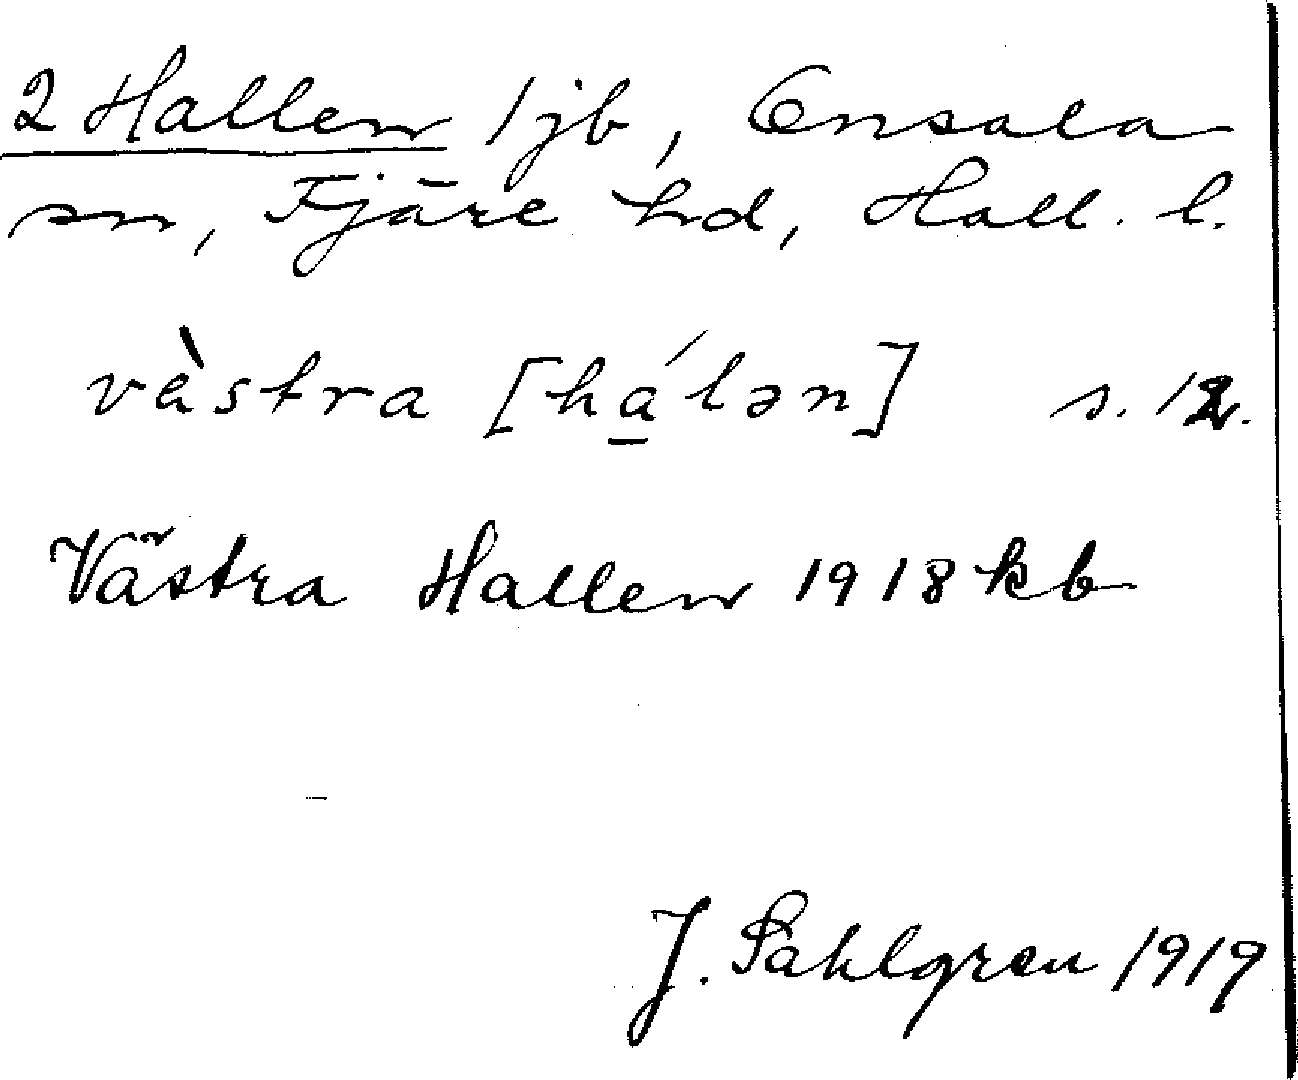 2 Hallen 1 jb, Onsala
sn, Fjäre hd, Hall. l.
vàstra [há̲lən] s. 12.
Västra Hallen 1918 kb
J. Sahlgren 1919